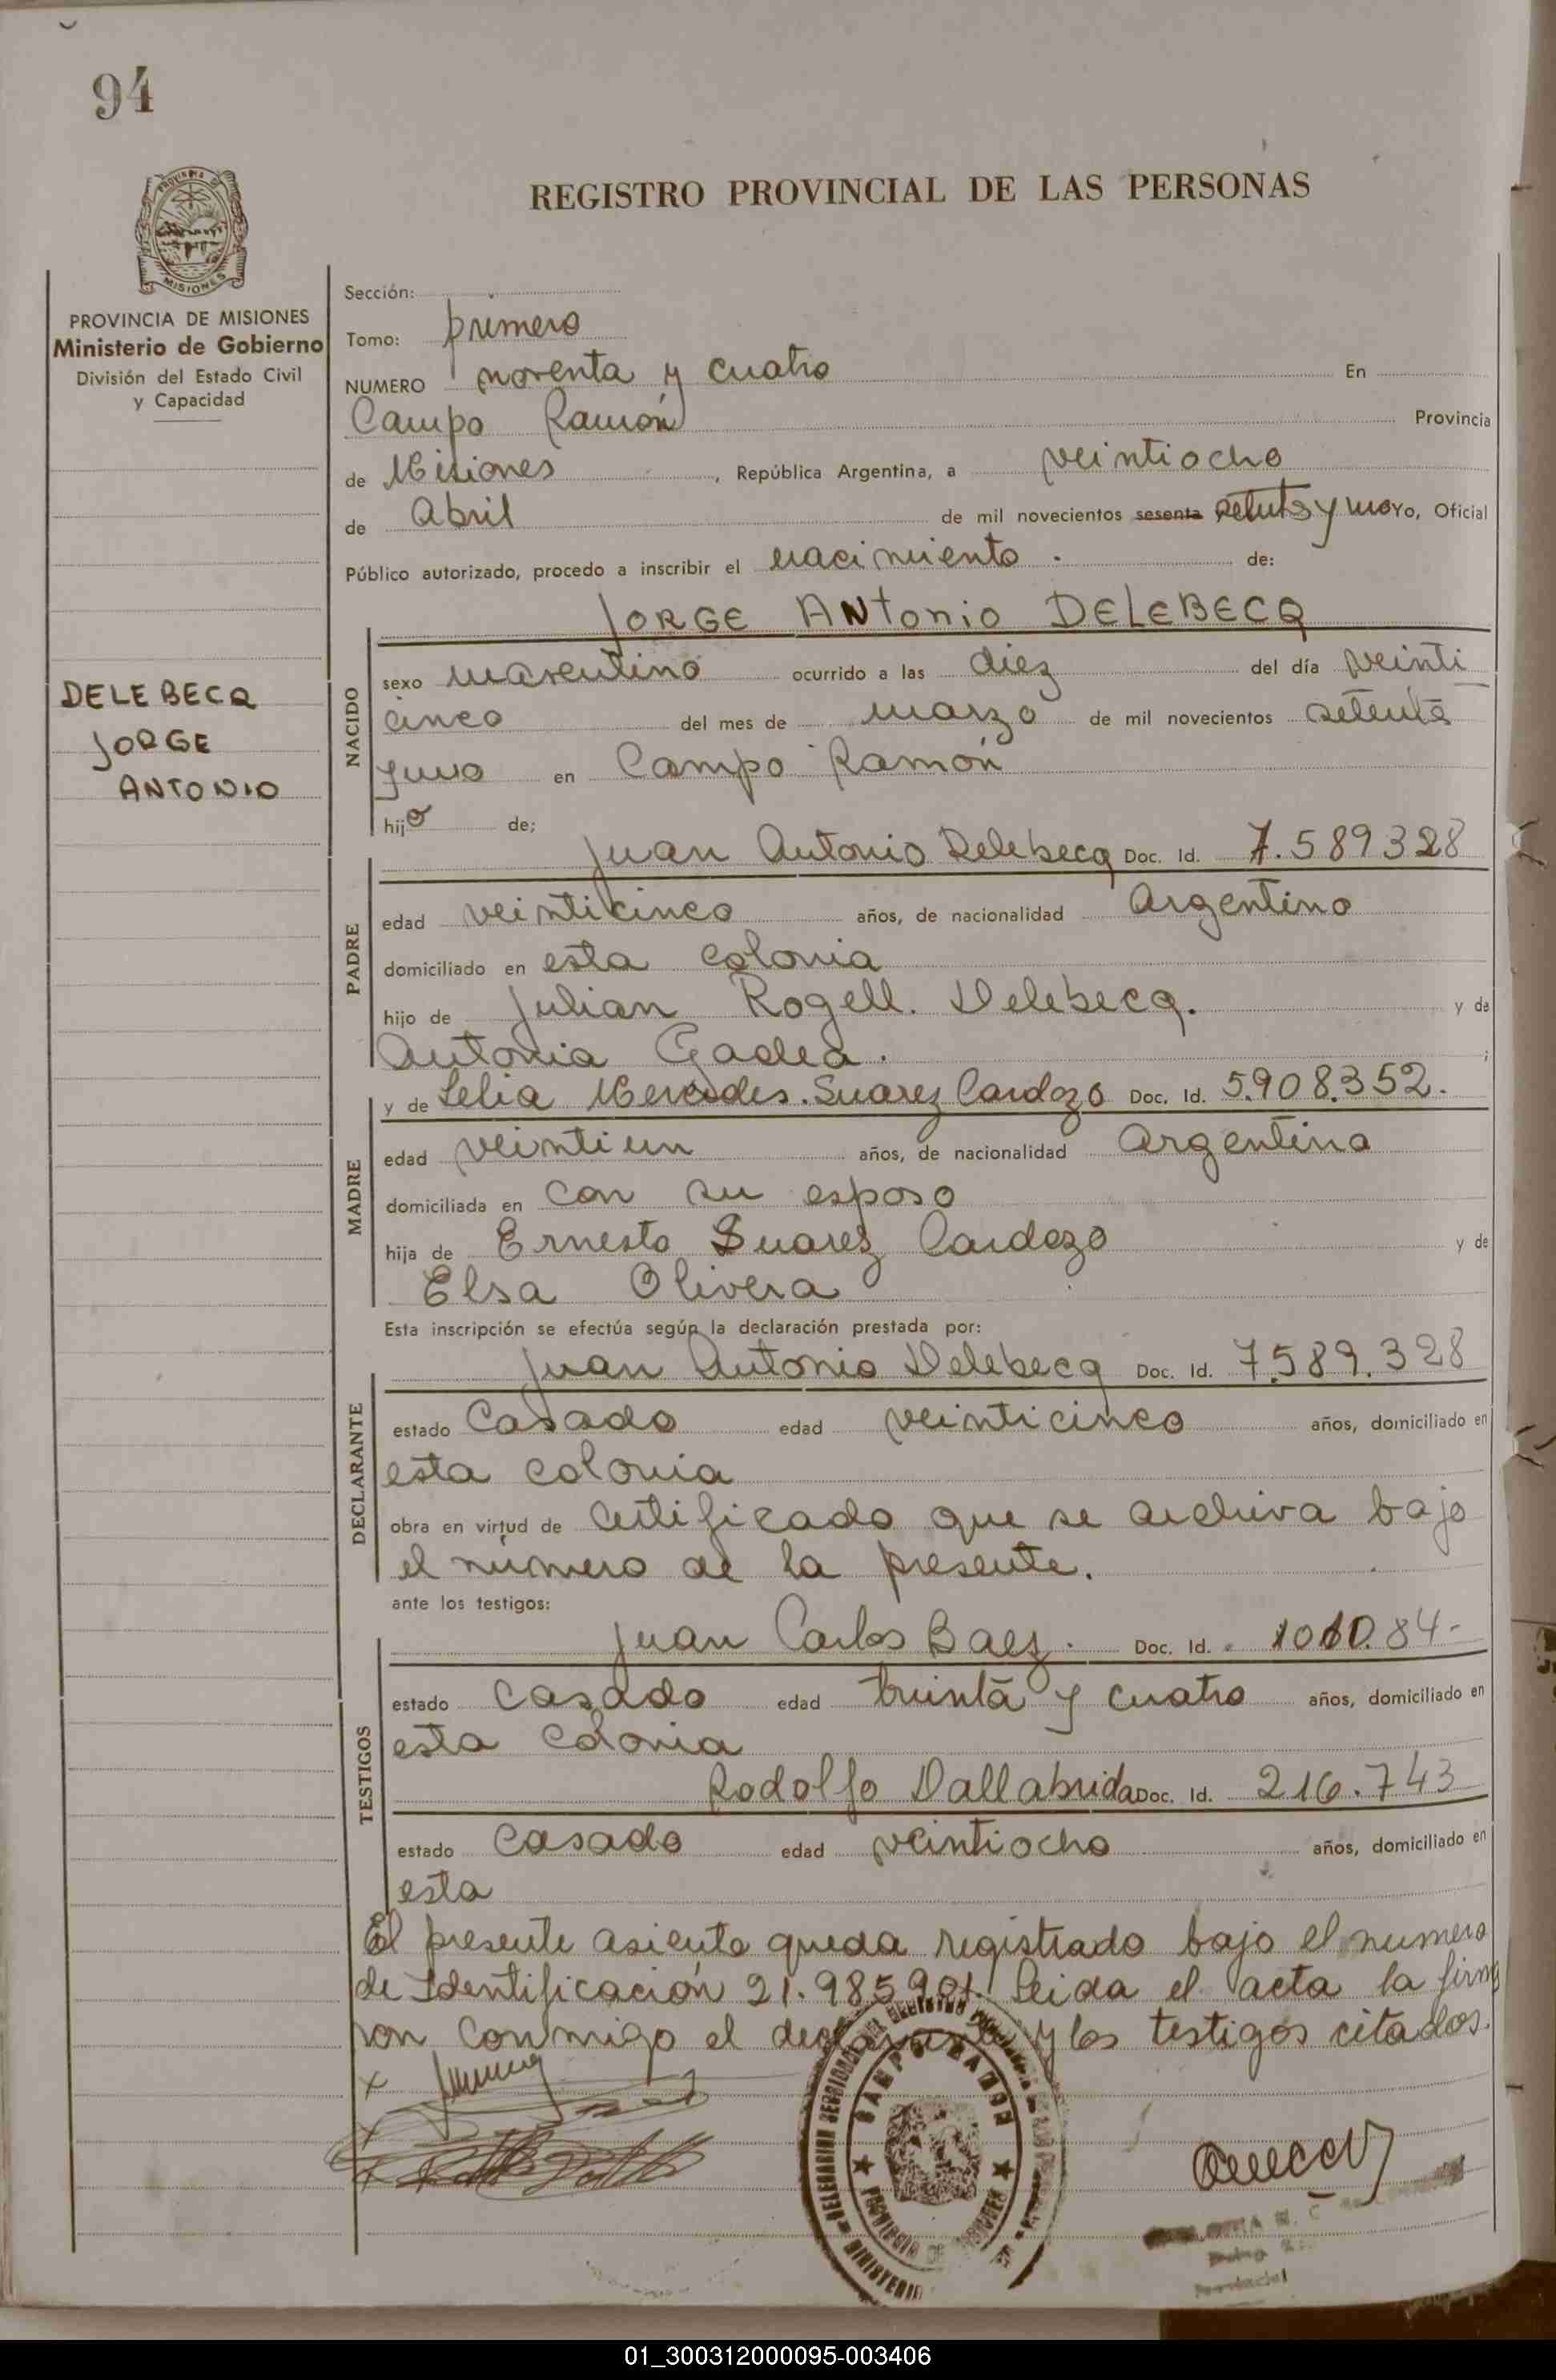 94
REGISTRO PROVINCIAL DE LAS PERSONAS
PROVINCIA DE MISIONES
Ministerio de Gobierno
División del Estado Civil
y Capacidad
DELEBECQ
JORGE
ANTONIO
Sección:
Tomo: primero
NUMERO noventa y cuatro En
Campo Ramón Provincia
de Misiones, República Argentina, a veintiocho
de Abril de mil novecientos sesenta setenta y uno Yo, Oficial
Público autorizado, procedo a inscribir el nacimiento. de:
JORGE ANtonio DELEBECQ
NACIDO
sexo masculino ocurrido a las diez del día veinti
cinco del mes de marzo de mil novecientos setenta
y uno en Campo Ramón
hijo de;
Juan Antonio Delebecq Doc. Id. 7.589328
PADRE
edad veinticinco años, de nacionalidad Argentino
domiciliado en esta colonia
hijo de Julian Rogell. Delebecq. y de
Antonia Gadea.;
y de Lelia Mercedes. Suarez Cardozo Doc. Id. 5.908.352.
MADRE
edad veintiun años, de nacionalidad Argentina
domiciliada en con su esposo
hija de Ernesto Suarez Cardozo y de
Elsa Olivera
Esta inscripción se efectúa según la declaración prestada por:
Juan Antonio Delebecq Doc. Id. 7.589.328
DECLARANTE
estado Casado edad veinticinco años, domiciliado en
esta colonia
obra en virtud de Certificado que se archiva bajo
el número de la presente.
ante los testigos:
Juan Carlos Baez. Doc. Id.
TESTIGOS
estado Casado edad treinta y cuatro años, domiciliado en
esta Colonia
Rodolfo Dallabrida Doc. Id. 216.743
estado Casado edad veintiocho años, domiciliado en
esta
El presente asiento queda registrado bajo el numero
de Identificación 21.985901. Leida el acta la firma
ron conmigo el declarante y los testigos citados.
CAMPO RAMON
PROVINCIA DE MISIONES
MINISTERIO
01_300312000095-003406